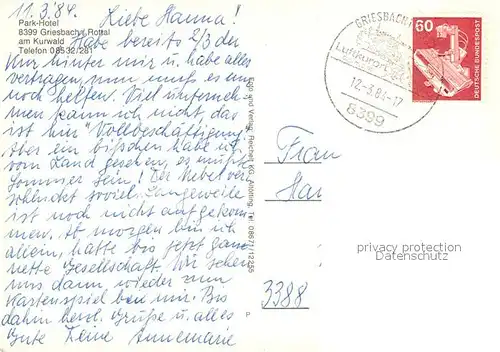 11.3.84.
Park-Hotel
8399 Griesbach i. Rottal
am Kurwald
Telefon 08532/281
Liebe Hanna!
Habe bereits 2/3 der
Kur hinter mir u. habe alles
vertragen, nun muß es nur
noch helfen. Viel unterneh-
men kann ich nicht, das
ist hier "Vollbeschäftigung".
Aber ein bißchen habe ich
vom Land gesehen, es müßte
Sommer sein! Der Nebel ver-
schluckt soviel. Langeweile
ist noch nicht aufgekom-
men. Ab morgen bin ich
allein, hatte bis jetzt ganz
nette Gesellschaft. Wir sehen
uns dann wieder zum
Kartenspiel bei mir. Bis
dahin herzl. Grüße u. alles
Gute Deine Annemarie
Verlag
Tel. 08671/12235
P
GRIESBACH
Luftkurort
12.-3.84.-17
8399
60
DEUTSCHE BUNDESPOST
Frau
Han
privacy protection
Datenschutz
3388